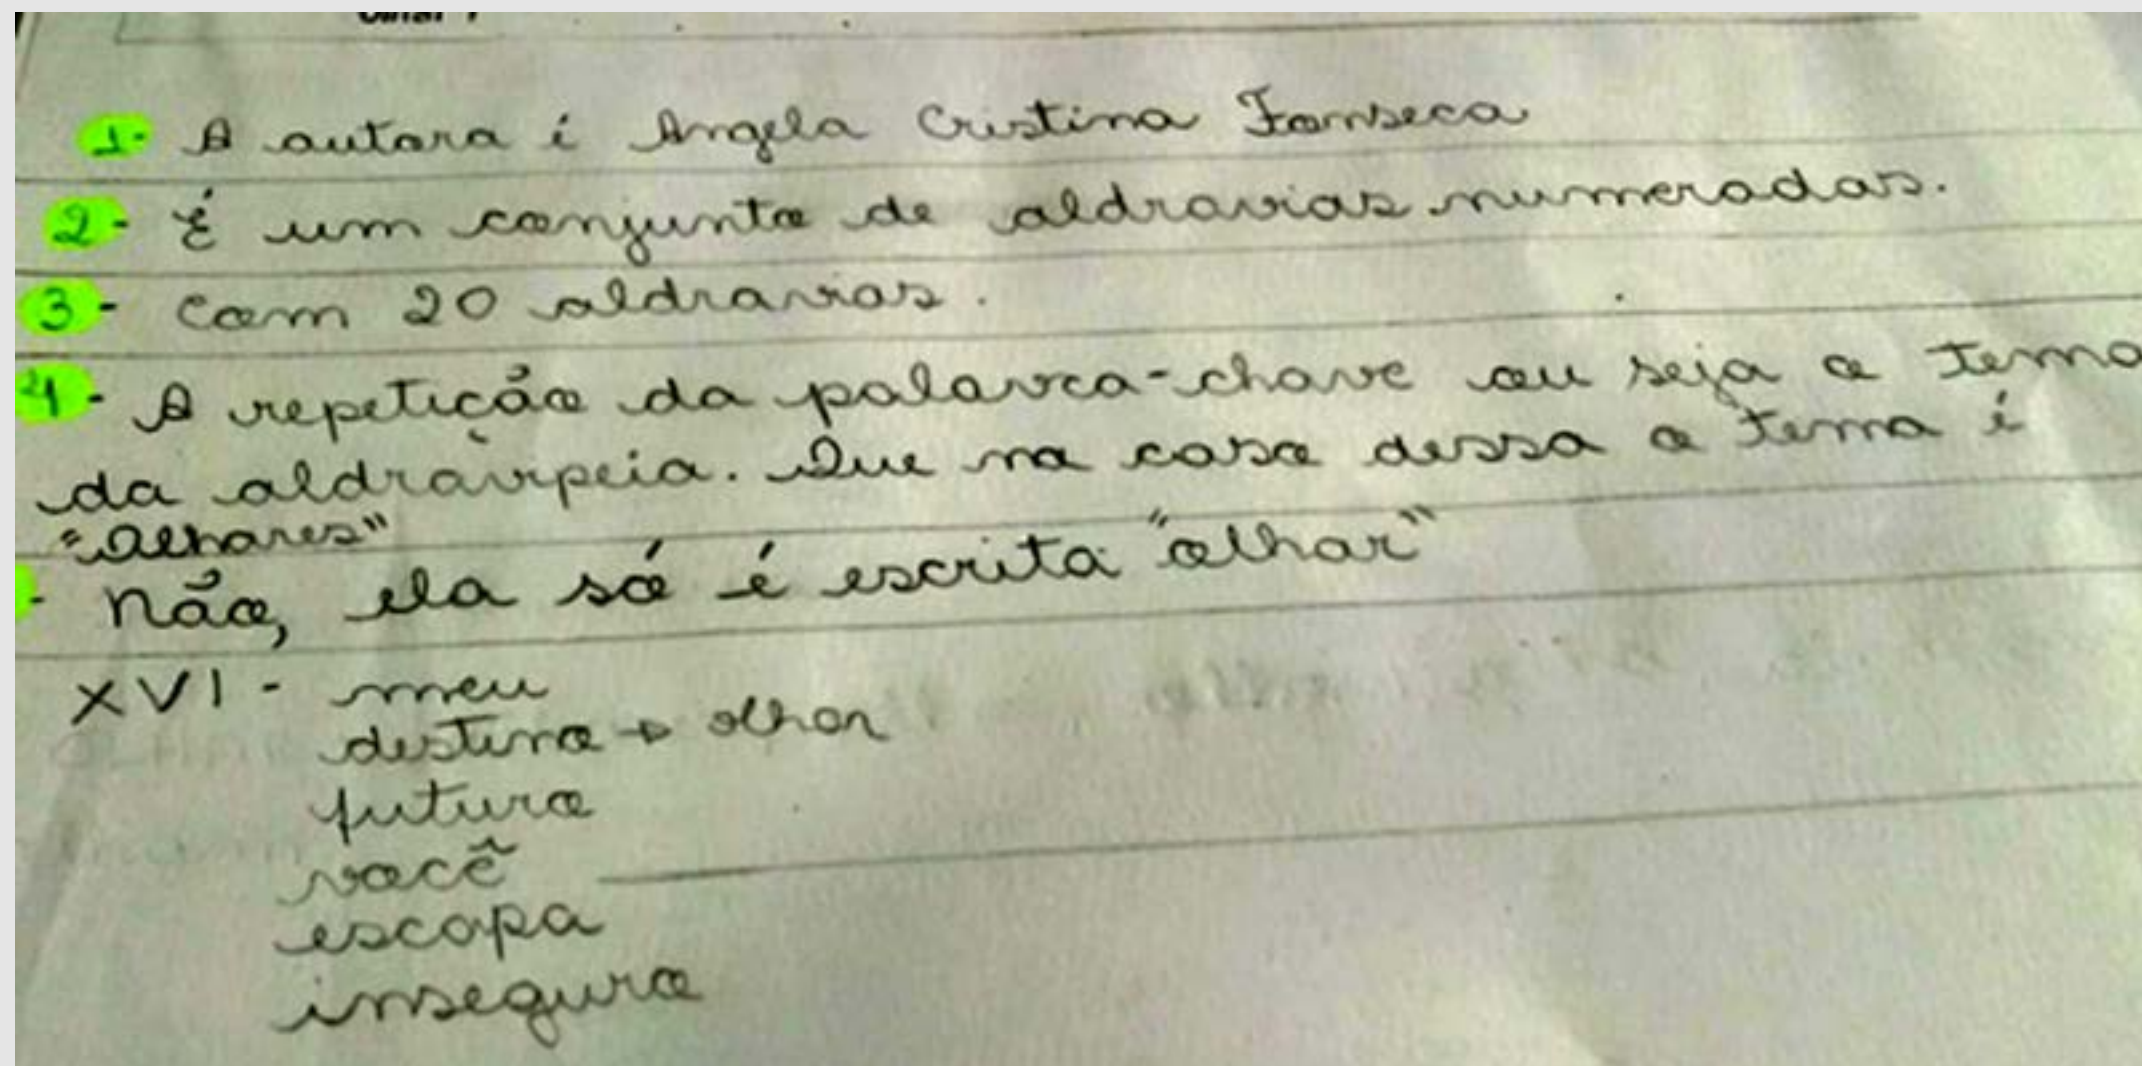 1- A autora é Angela Cristina Fonseca
2- É um conjunto de aldravias numeradas.
3- Com 20 aldravias.
4- A repetição da palavra-chave ou seja o tema
da aldravipeia. Que no caso dessa o tema é
"Olhares"
- Não, ela só é escrita "olhar"
XVI - meu
destino → olhar
futuro
você
escapa
inseguro